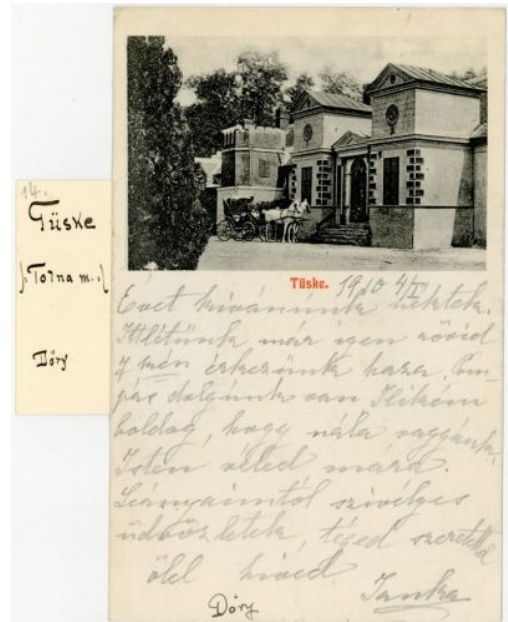 14.
Tüske
/: Tolna m. :/
Dőry
Tüske. 1910 4/I
Évet kívánunk nektek.
Ittlétünk már igen rövid
7 kén érkezünk haza. Pom-
pás dolgunk van Ilikém
boldog, hogy nála vagyunk.
Isten veled mára.
Leányaimtól szivélyes
üdvözletek, téged szeretettel
ölel híved
Janka
Dőry